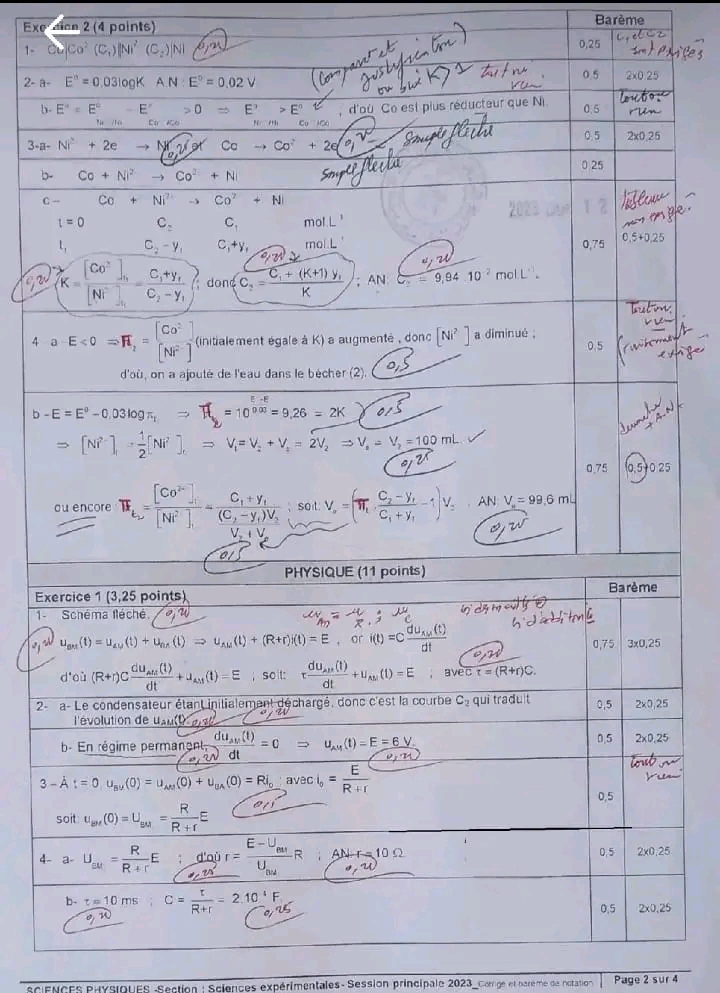 Exercice 2 (4 points)
Barème
1- Co|Co²⁺ (C₁)||Ni²⁺ (C₂)|Ni
0,25
0,25
C₁ et C₂ sont précisés
2- a- E° = 0,03logK A.N : E° = 0,02 V
0,5
2x0,25
(comparant et justification) ou bien K > 1
tout ou rien
b- E° = E°Ni²⁺/Ni - E°Co²⁺/Co > 0 ⇒ E°Ni²⁺/Ni > E°Co²⁺/Co , d'où Co est plus réducteur que Ni.
0,5
tout ou rien
3-a- Ni²⁺ + 2e⁻ → Ni et Co → Co²⁺ + 2e⁻
0,25
0,25
simple flèche
0,5
2x0,25
b- Co + Ni²⁺ → Co²⁺ + Ni
simple flèche
0,25
c- Co + Ni²⁺ → Co²⁺ + Ni
2023
t = 0 C₂ C₁ mol.L⁻¹
tableau non exigé
t₁ C₂ - y₁ C₁+y₁ mol.L⁻¹
0,75
0,5+0,25
0,25
0,25
0,25
K = [Co²⁺]t₁ / [Ni²⁺]t₁ = (C₁+y₁) / (C₂ - y₁) ; donc C₂ = (C₁ + (K+1) y₁) / K ; AN: C₂ = 9,94.10⁻² mol.L⁻¹.
4 - a - E<0 ⇒ π₂ = [Co²⁺] / [Ni²⁺] (initialement égale à K) a augmenté , donc [Ni²⁺] a diminué ;
d'où, on a ajouté de l'eau dans le bécher (2).
0,5
0,5
tout ou rien
b - E = E° - 0,03logπt₂ ⇒ πt₂ = 10^((E°-E)/0,03) = 9,26 = 2K
0,5
⇒ [Ni²⁺] = 1/2 [Ni²⁺] ⇒ V₁ = V₂ + Vₑ = 2V₂ ⇒ Vₑ = V₂ = 100 mL.
0,25
0,75
0,5+0,25
ou encore πt₂ = [Co²⁺] / [Ni²⁺] = (C₁ + y₁) / ((C₂ - y₁)V₂ / (V₂ + Vₑ)) ; soit: Vₑ = (πt₂ (C₂ - y₁)/(C₁ + y₁) - 1) V₂ . AN: Vₑ = 99,6 mL
0,5
0,25
PHYSIQUE (11 points)
Exercice 1 (3,25 points)
Barème
1- Schéma fléché.
0,25
0,25
uBM(t) = uAM(t) + uBA(t) ⇒ uAM(t) + (R+r)i(t) = E , or i(t)=C duAM(t)/dt
0,75
3x0,25
d'où (R+r)C duAM(t)/dt + uAM(t) = E ; soit: τ duAM(t)/dt + uAM(t) = E ; avec τ = (R+r)C.
0,25
2- a- Le condensateur étant initialement déchargé, donc c'est la courbe C₂ qui traduit
l'évolution de uAM(t).
0,25
0,25
0,5
2x0,25
b- En régime permanent, duAM(t)/dt = 0 ⇒ uAM(t) = E = 6 V.
0,25
0,25
0,5
2x0,25
3 - À t = 0, uBM(0) = uAM(0) + uBA(0) = Ri₀ ; avec i₀ = E/(R+r)
tout ou rien
0,5
0,5
soit: uBM(0) = UBM = R/(R+r) E
4- a- UBM = R/(R+r) E ; d'où r = (E-UBM)/UBM R ; AN: r = 10 Ω
0,25
0,25
0,5
2x0,25
b- τ = 10 ms ; C = τ/(R+r) = 2.10⁻⁴ F.
0,25
0,25
0,5
2x0,25
SCIENCES PHYSIQUES -Section : Sciences expérimentales- Session principale 2023_Corrigé et barème de notation
Page 2 sur 4